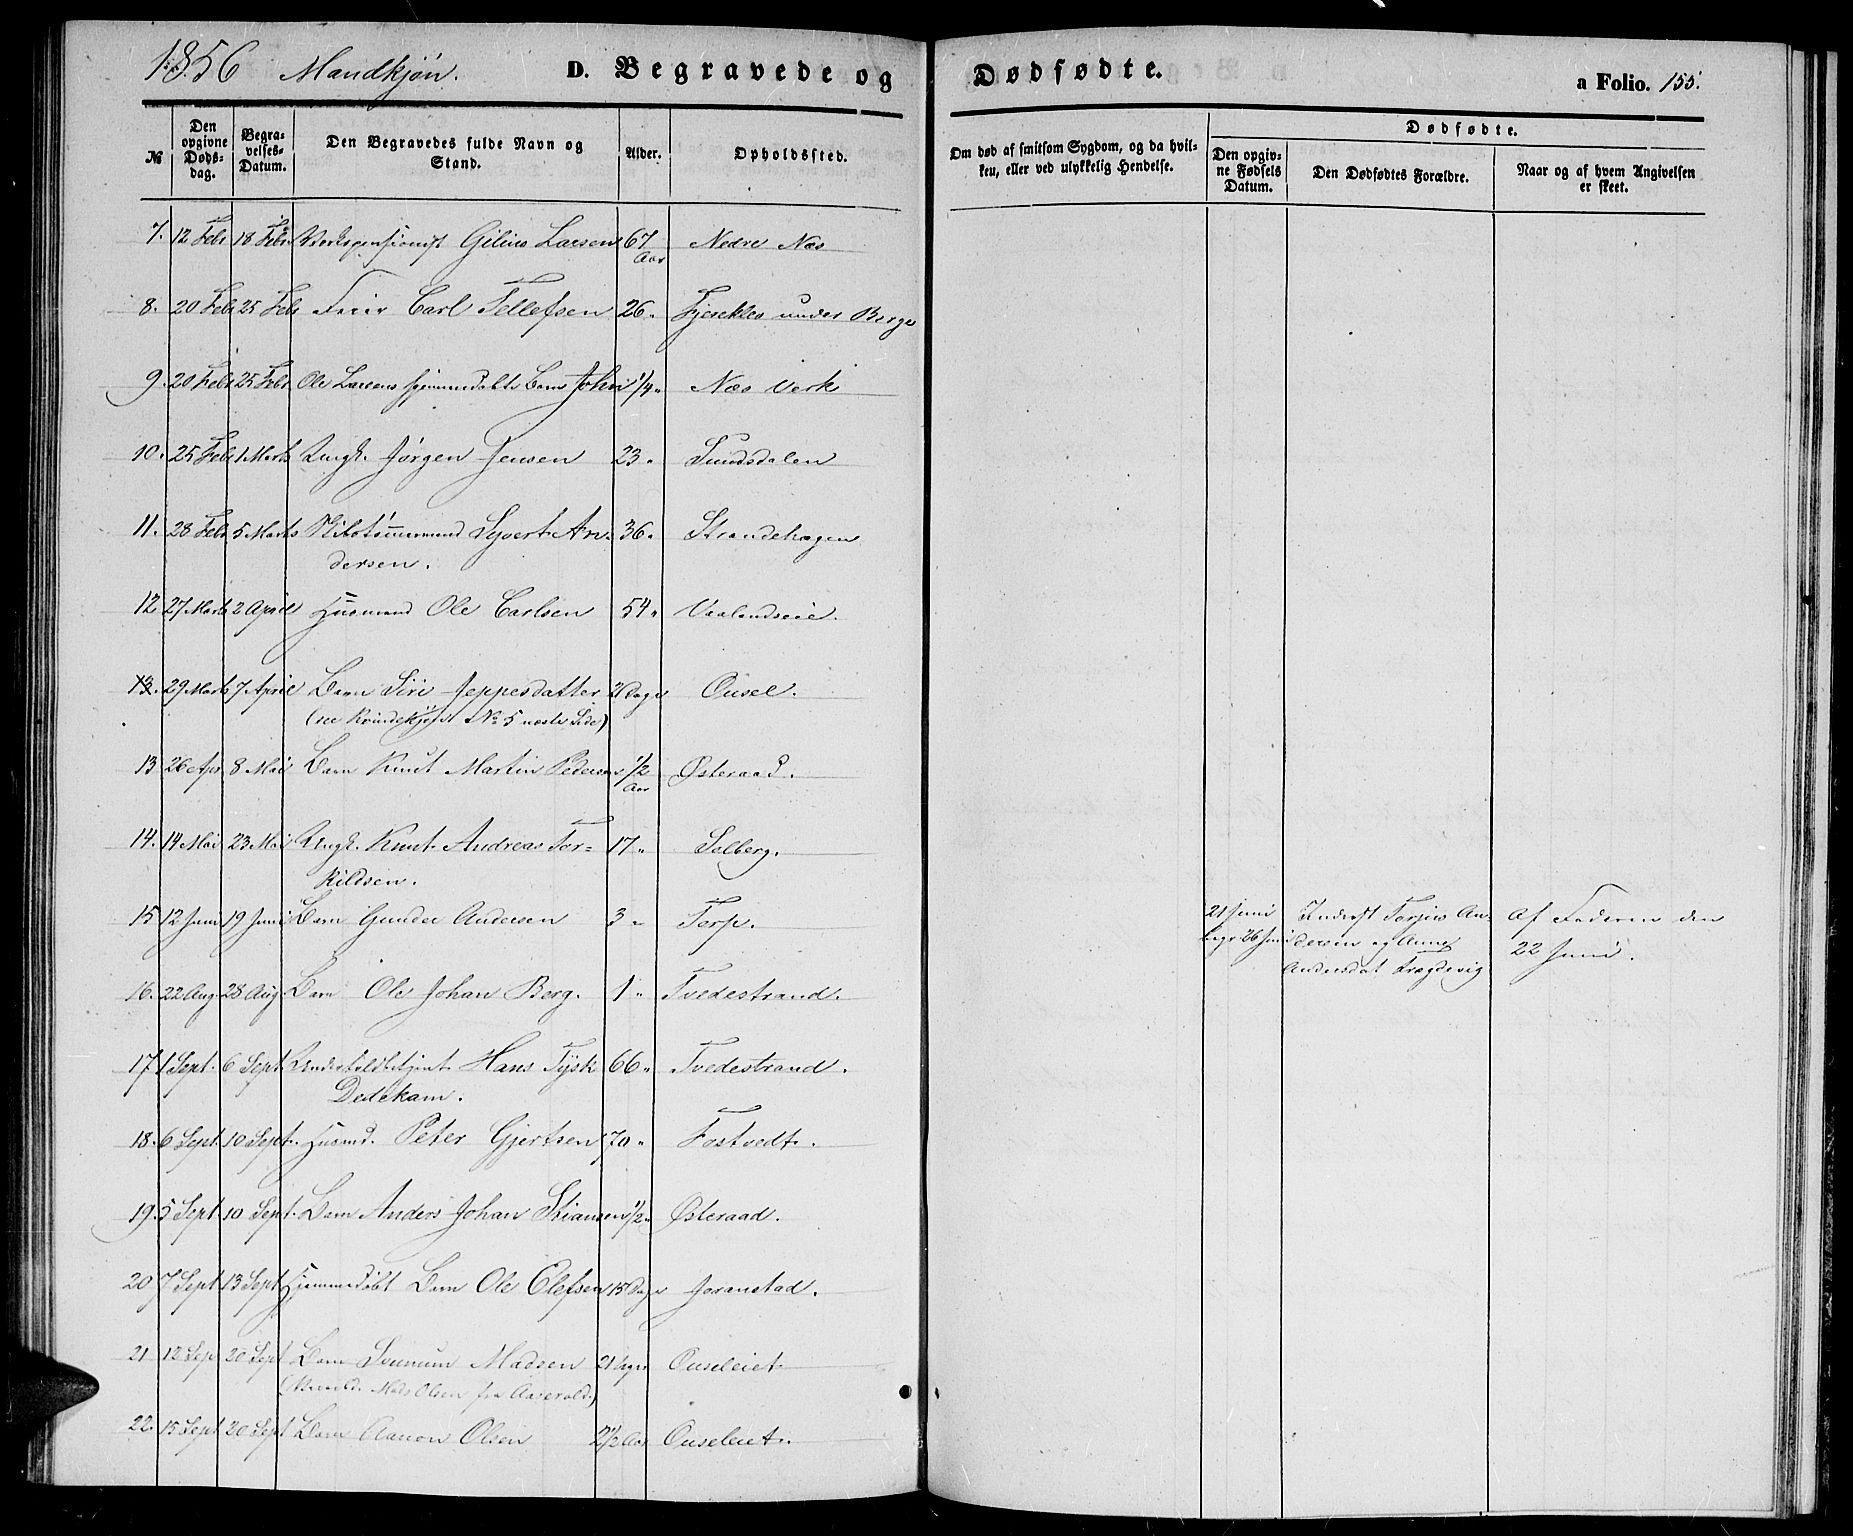 1856 Mandkjøn. D. Begravede og Dødfødte. a Folio. 155.
№ Den opgivne Døds-dag. Begra-velses-Datum. Den Begravedes fulde Navn og Stand. Alder. Opholdssted. Om død af smitsom Sygdom, og da hvil-ken, eller ved ulykkelig Hendelse. Dødfødte. Den opgiv-ne Fødsels Datum. Den Dødfødtes Forældre. Naar og af hvem Angivelsen er skeet.
7. 12 Febr 18 Febr Verkspensionist Larsen 67 Aar Nedre Næs
8. 20 Febr 25 Febr Carl Tellefsen 26 " under Berge
9. 20 Febr 25 Febr Ole Larsens hjemmedøbte Barn John 1/4 " Næs Verk
10. 25 Febr 1 Marts Ungk. Jørgen Jensen 23 " Sundsdalen
11. 28 Febr 5 Marts Skibstømmermand Syvert An-
dersen. 36 " Strandehagen
12 27 Marts 2 April Husmand Ole Carlsen 54 " Vaalandseie.
13. 29 Marts 7 April Barn Siri Jeppesdatter 2 Dage Ousel.
(see Kvindekjøn No 5 næste Side)
13 26 Apr 8 Mai Barn Knut Martin Pedersen 1/2 Aar Østeraad.
14. 14 Mai 23 Mai Ungk. Knut Andreas Ter=
kildsen. 17 " Selberg.
15 12 Juni 19 Juni Barn Gunder Andersen 3 " Terp.
21 Juni begr 26 Juni Inderst Terjus An-
dersen og Anne
Andersdat Krogdevig
Af Faderen den
22 Juni.
16. 22 Aug. 28 Aug. Barn Ole Johan Berg. 1 " Tvedestrand.
17. 1 Sept. 6 Sept. Undertoldbetjent Hans Tysk
Dedekam. 66 " Tvedestrand.
18. 6 Sept. 10 Sept. Husmd. Peter Gjertsen 70 " Fostvedt.
19. 5 Sept. 10 Sept. Barn Anders Johan Stiansen 1/2 " Østeraad.
20 7 Sept 13 Sept Hjemmedøbt Barn Ole Olefsen 15 Dage Joranstad.
21 12 Sep 20 Sept Barn Madsen 21 Ouseleiet
Mads Olsen fra Aaserald.)
22. 15 Sept 20 Sept Barn Aanon Olsen 2 1/2 Aar Ouseleiet.